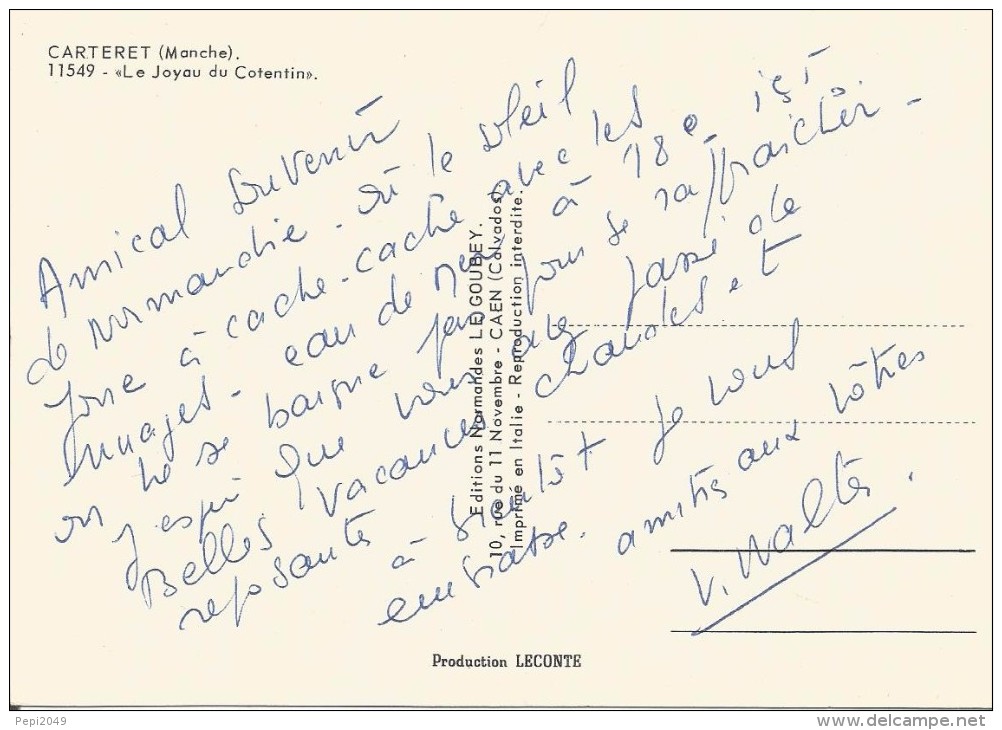 CARTERET (Manche).
11549 - «Le Joyau du Cotentin».
Amical Souvenir
de Normandie - où le soleil
joue à cache-cache avec les
nuages - eau de mer à 18°. ici
on ne se baigne pas pour se raffraichir -
J'espère que vous avez passé de
Belles vacances chaudes et
reposantes
à bientôt je vous
embrasse. amitiés aux vôtres
V. Walter.
Editions Normandes LEGOUBEY.
10, rue du 11 Novembre - CAEN (Calvados).
Imprimé en Italie - Reproduction interdite.
Production LECONTE
Pepi2049
www.delcampe.net